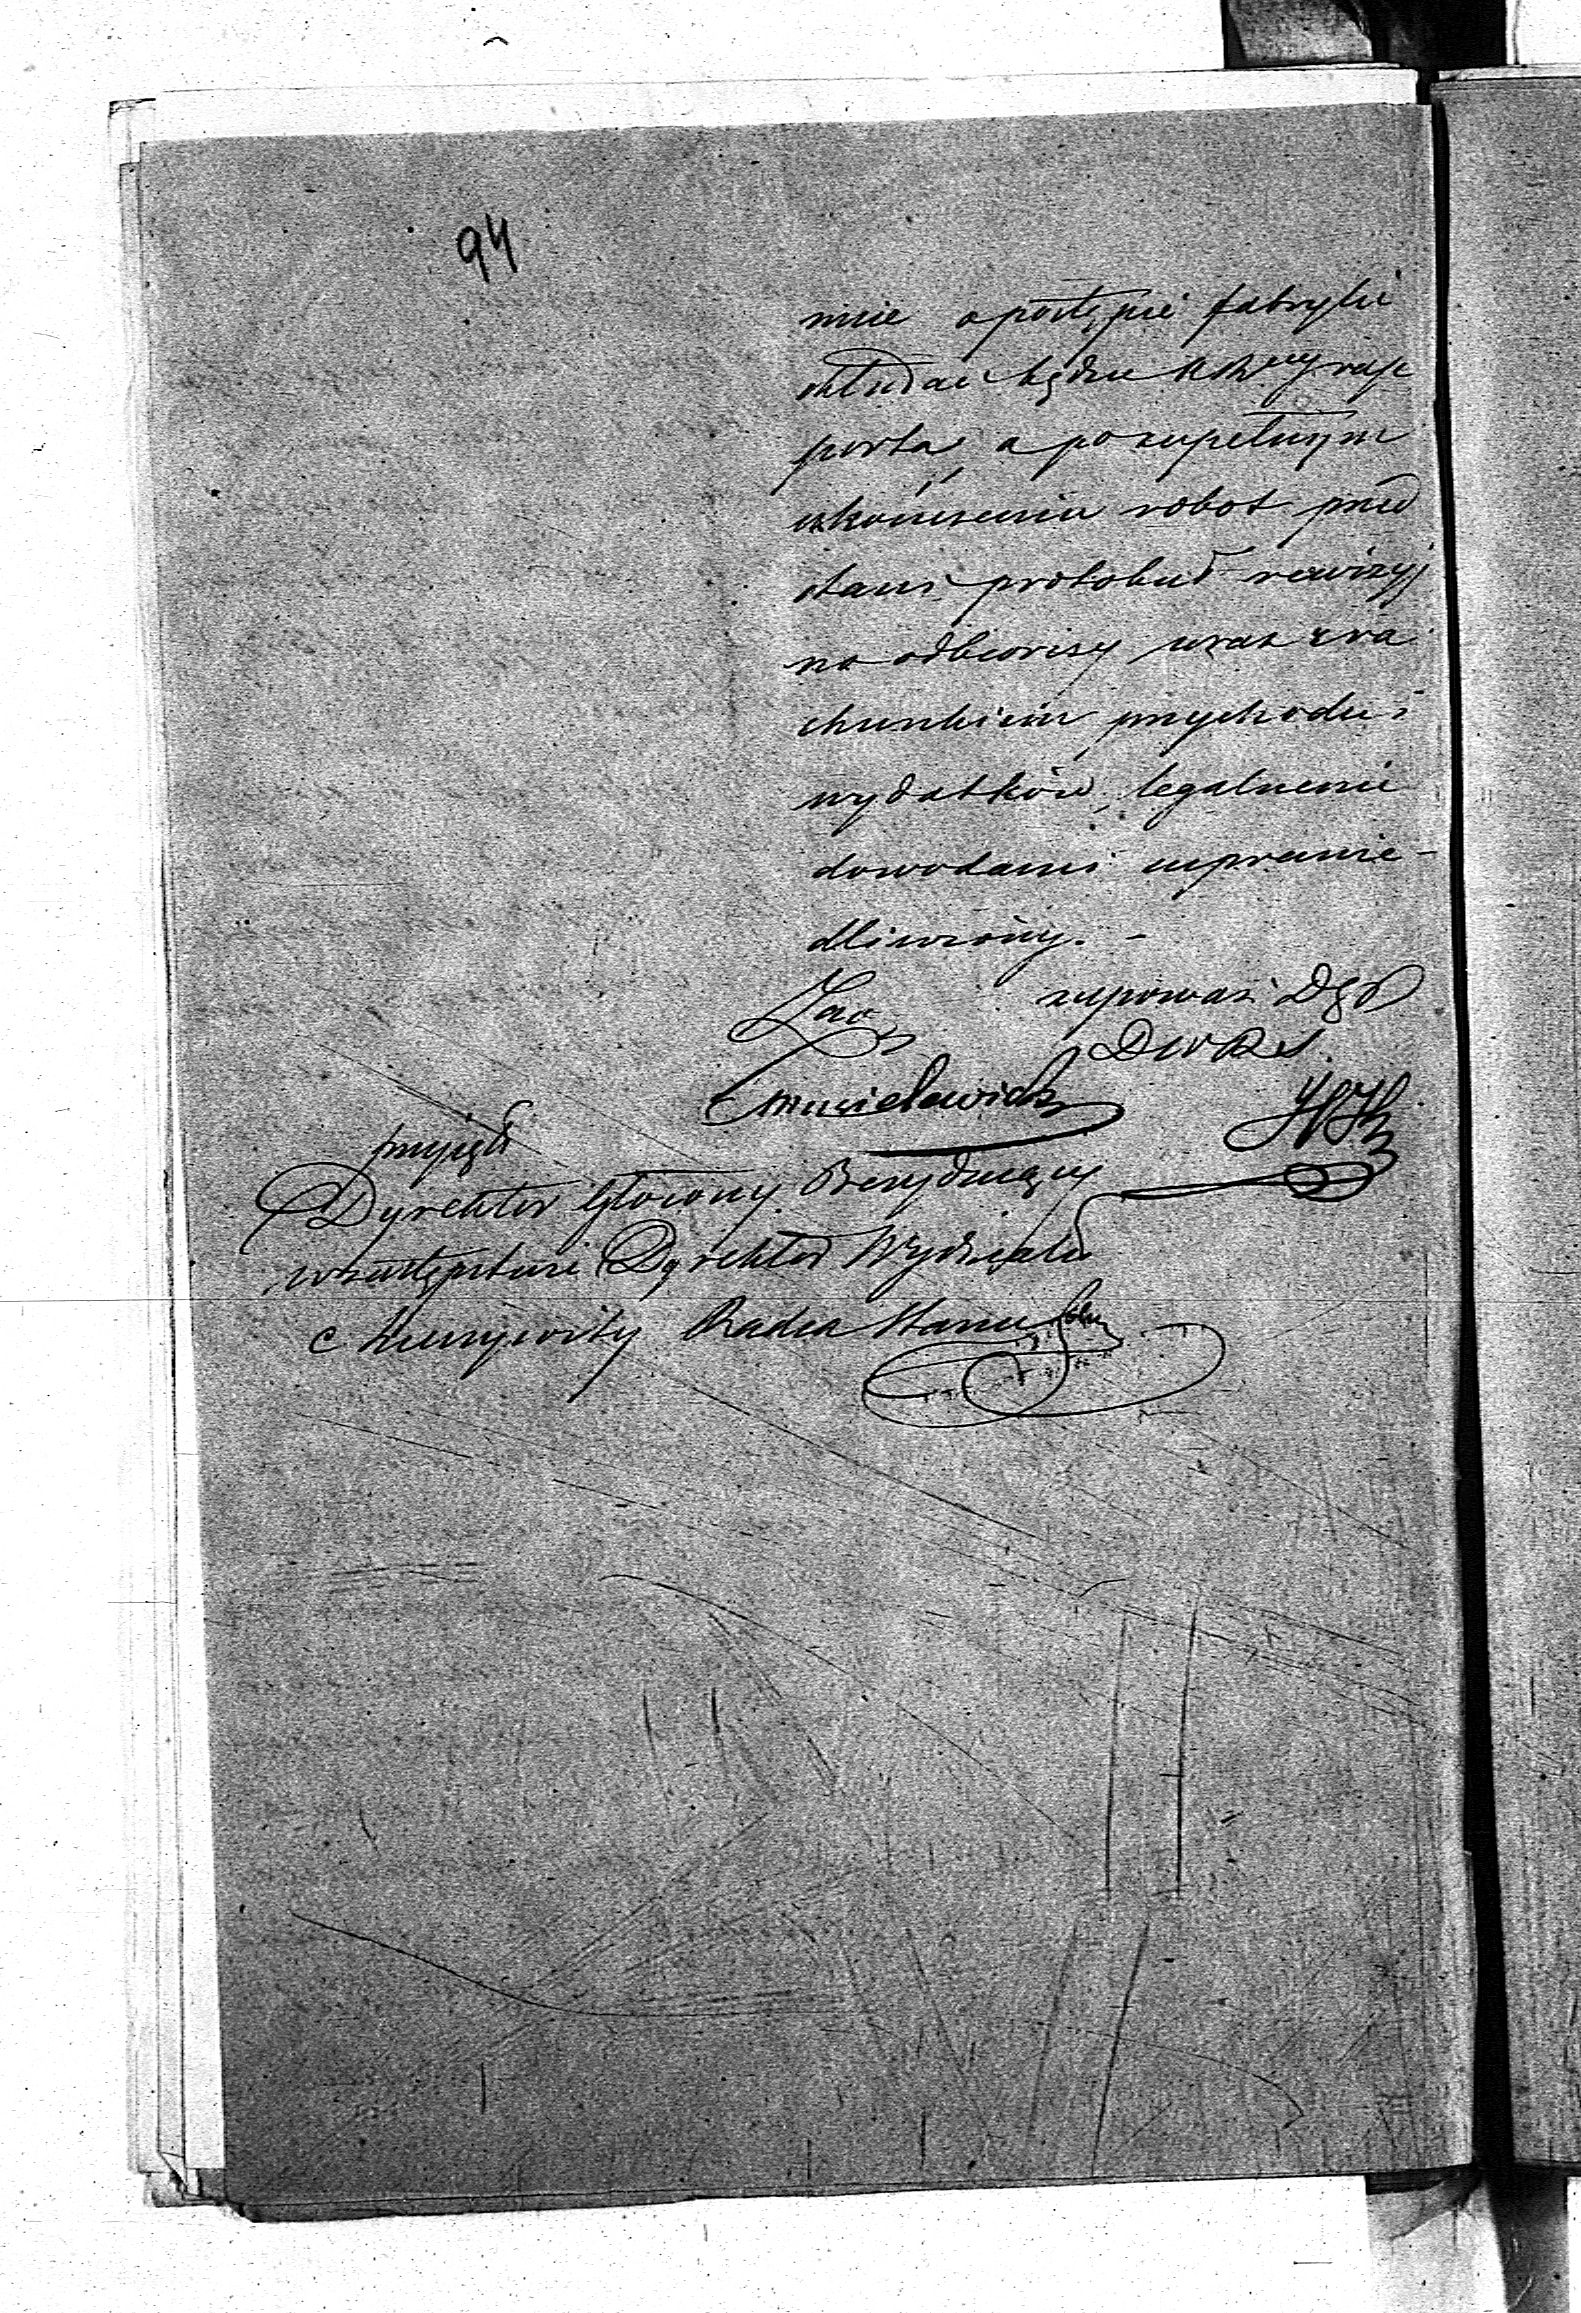 94
mie o postępie fabryki
składać będzie KR rap
porta, a po zupełnym
ukończeniu robot przed
stawi protokuł rewizyj
no odbiorczy wraz z ra
chunkiem przychodu i
wydatków, legalnemi
dowodami usprawie-
dliwiony. -
z upoważ: D G P
D W R S.
przyjęli
Dyrektor Główny Prezydujący
w zastępstwie Dyrektor Wydziału
Radca Stanu